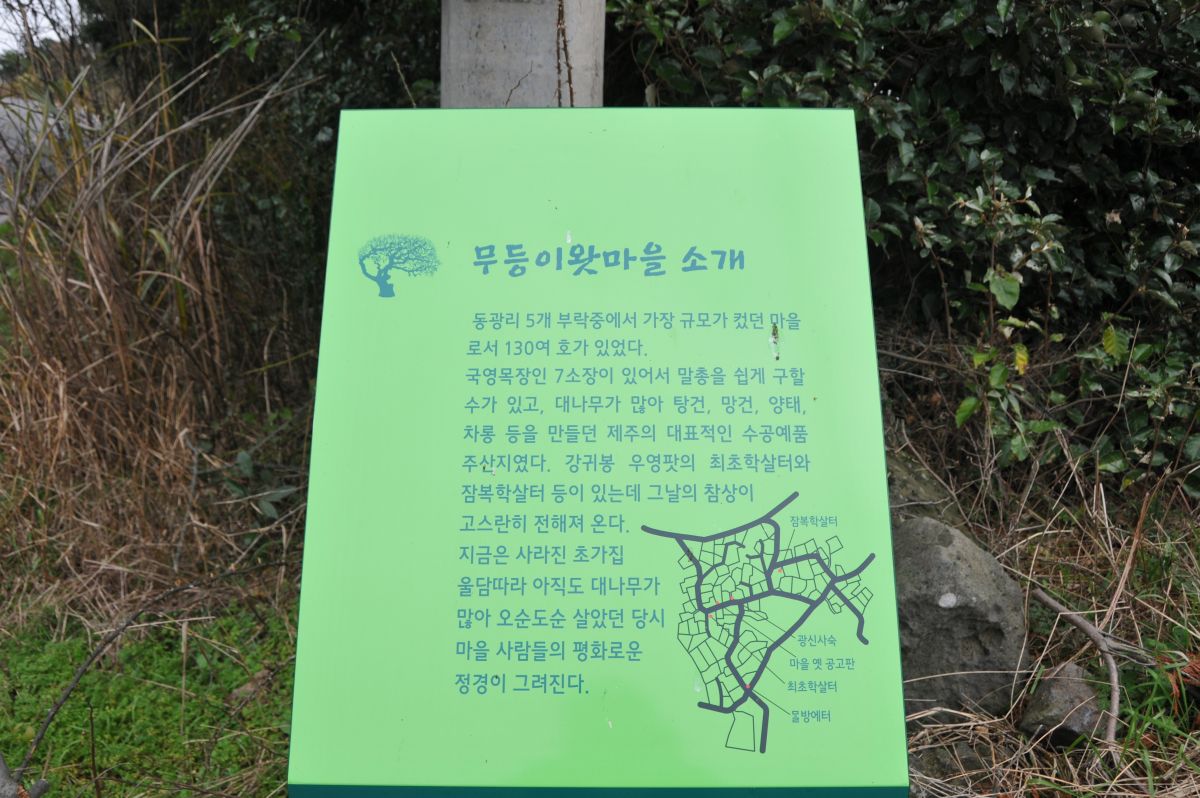 무등이왓마을 소개
동광리 5개 부락중에서 가장 규모가 컸던 마을
로서 130여 호가 있었다.
국영목장인 7소장이 있어서 말총을 쉽게 구할
수가 있고, 대나무가 많아 탕건, 망건, 양태,
차롱 등을 만들던 제주의 대표적인 수공예품
주산지였다. 강귀봉 우영팟의 최초학살터와
잠복학살터 등이 있는데 그날의 참상이
고스란히 전해져 온다.
지금은 사라진 초가집
울담따라 아직도 대나무가
많아 오순도순 살았던 당시
마을 사람들의 평화로운
정경이 그려진다.
잠복학살터
광신사숙
마을 옛 공고판
최초학살터
몰방에터